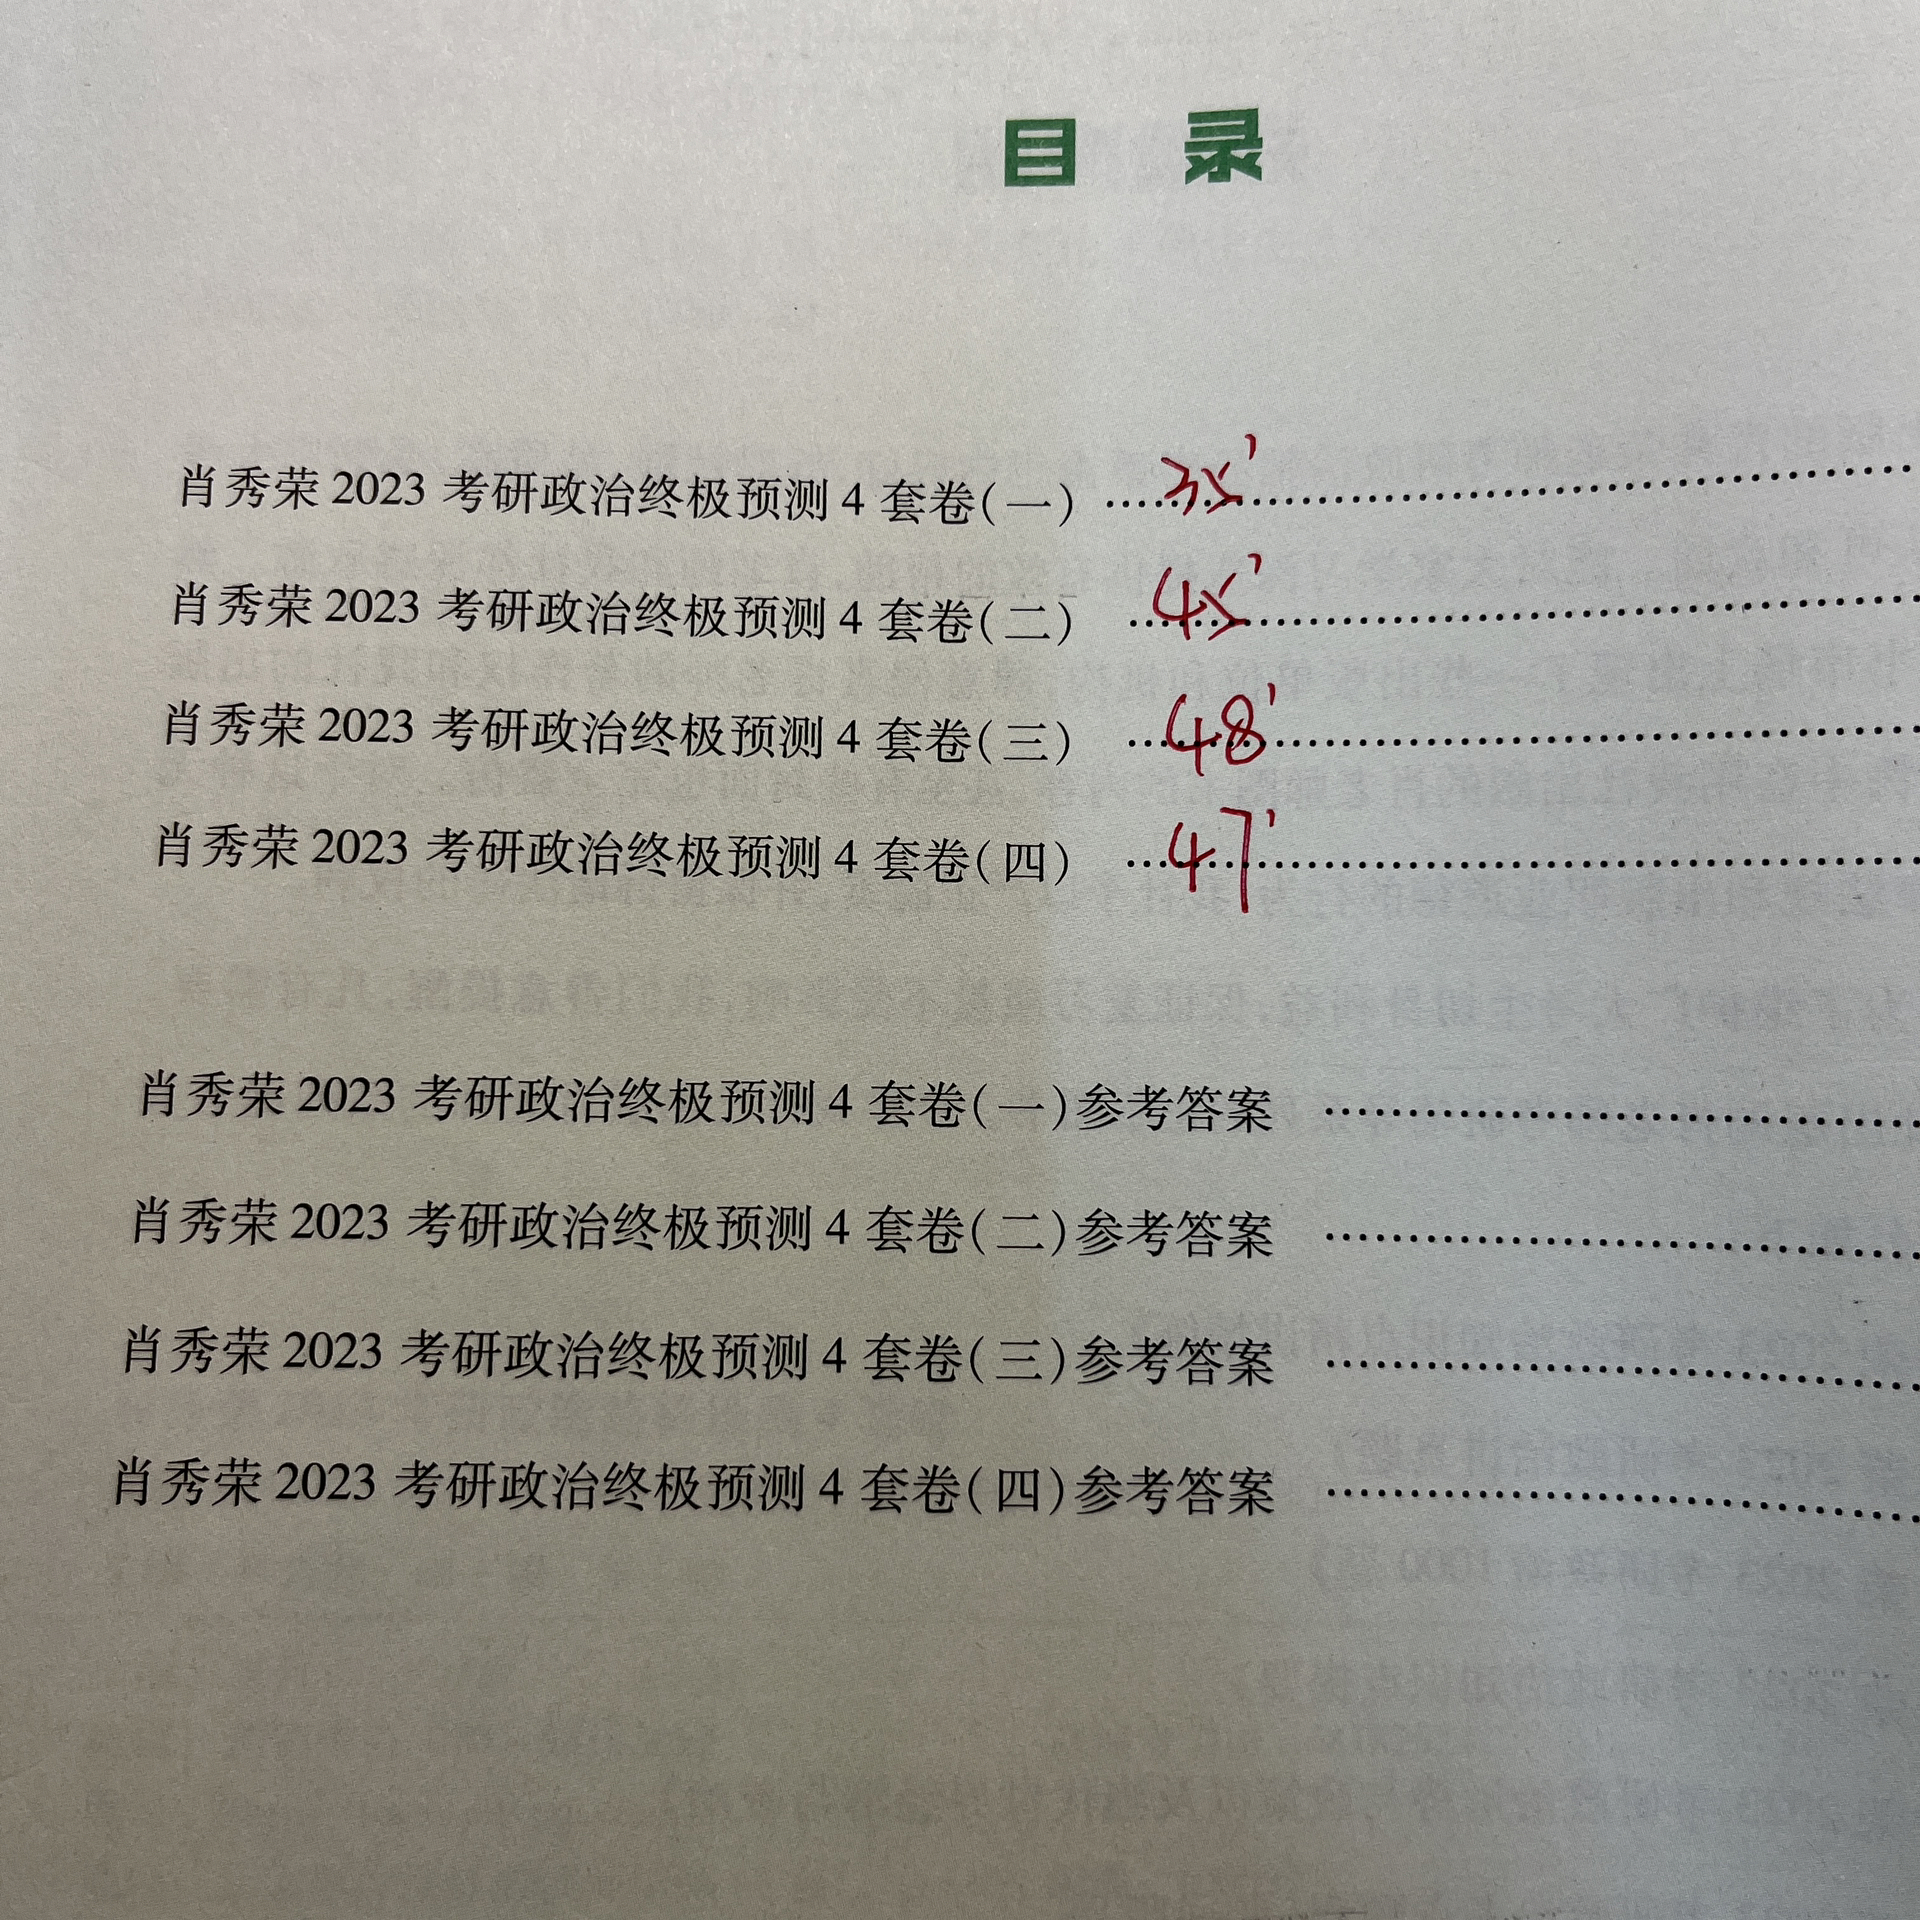 目 录
肖秀荣 2023 考研政治终极预测 4 套卷(一) 35'
肖秀荣 2023 考研政治终极预测 4 套卷(二) 45'
肖秀荣 2023 考研政治终极预测 4 套卷(三) 48'
肖秀荣 2023 考研政治终极预测 4 套卷(四) 47'
肖秀荣 2023 考研政治终极预测 4 套卷(一)参考答案
肖秀荣 2023 考研政治终极预测 4 套卷(二)参考答案
肖秀荣 2023 考研政治终极预测 4 套卷(三)参考答案
肖秀荣 2023 考研政治终极预测 4 套卷(四)参考答案